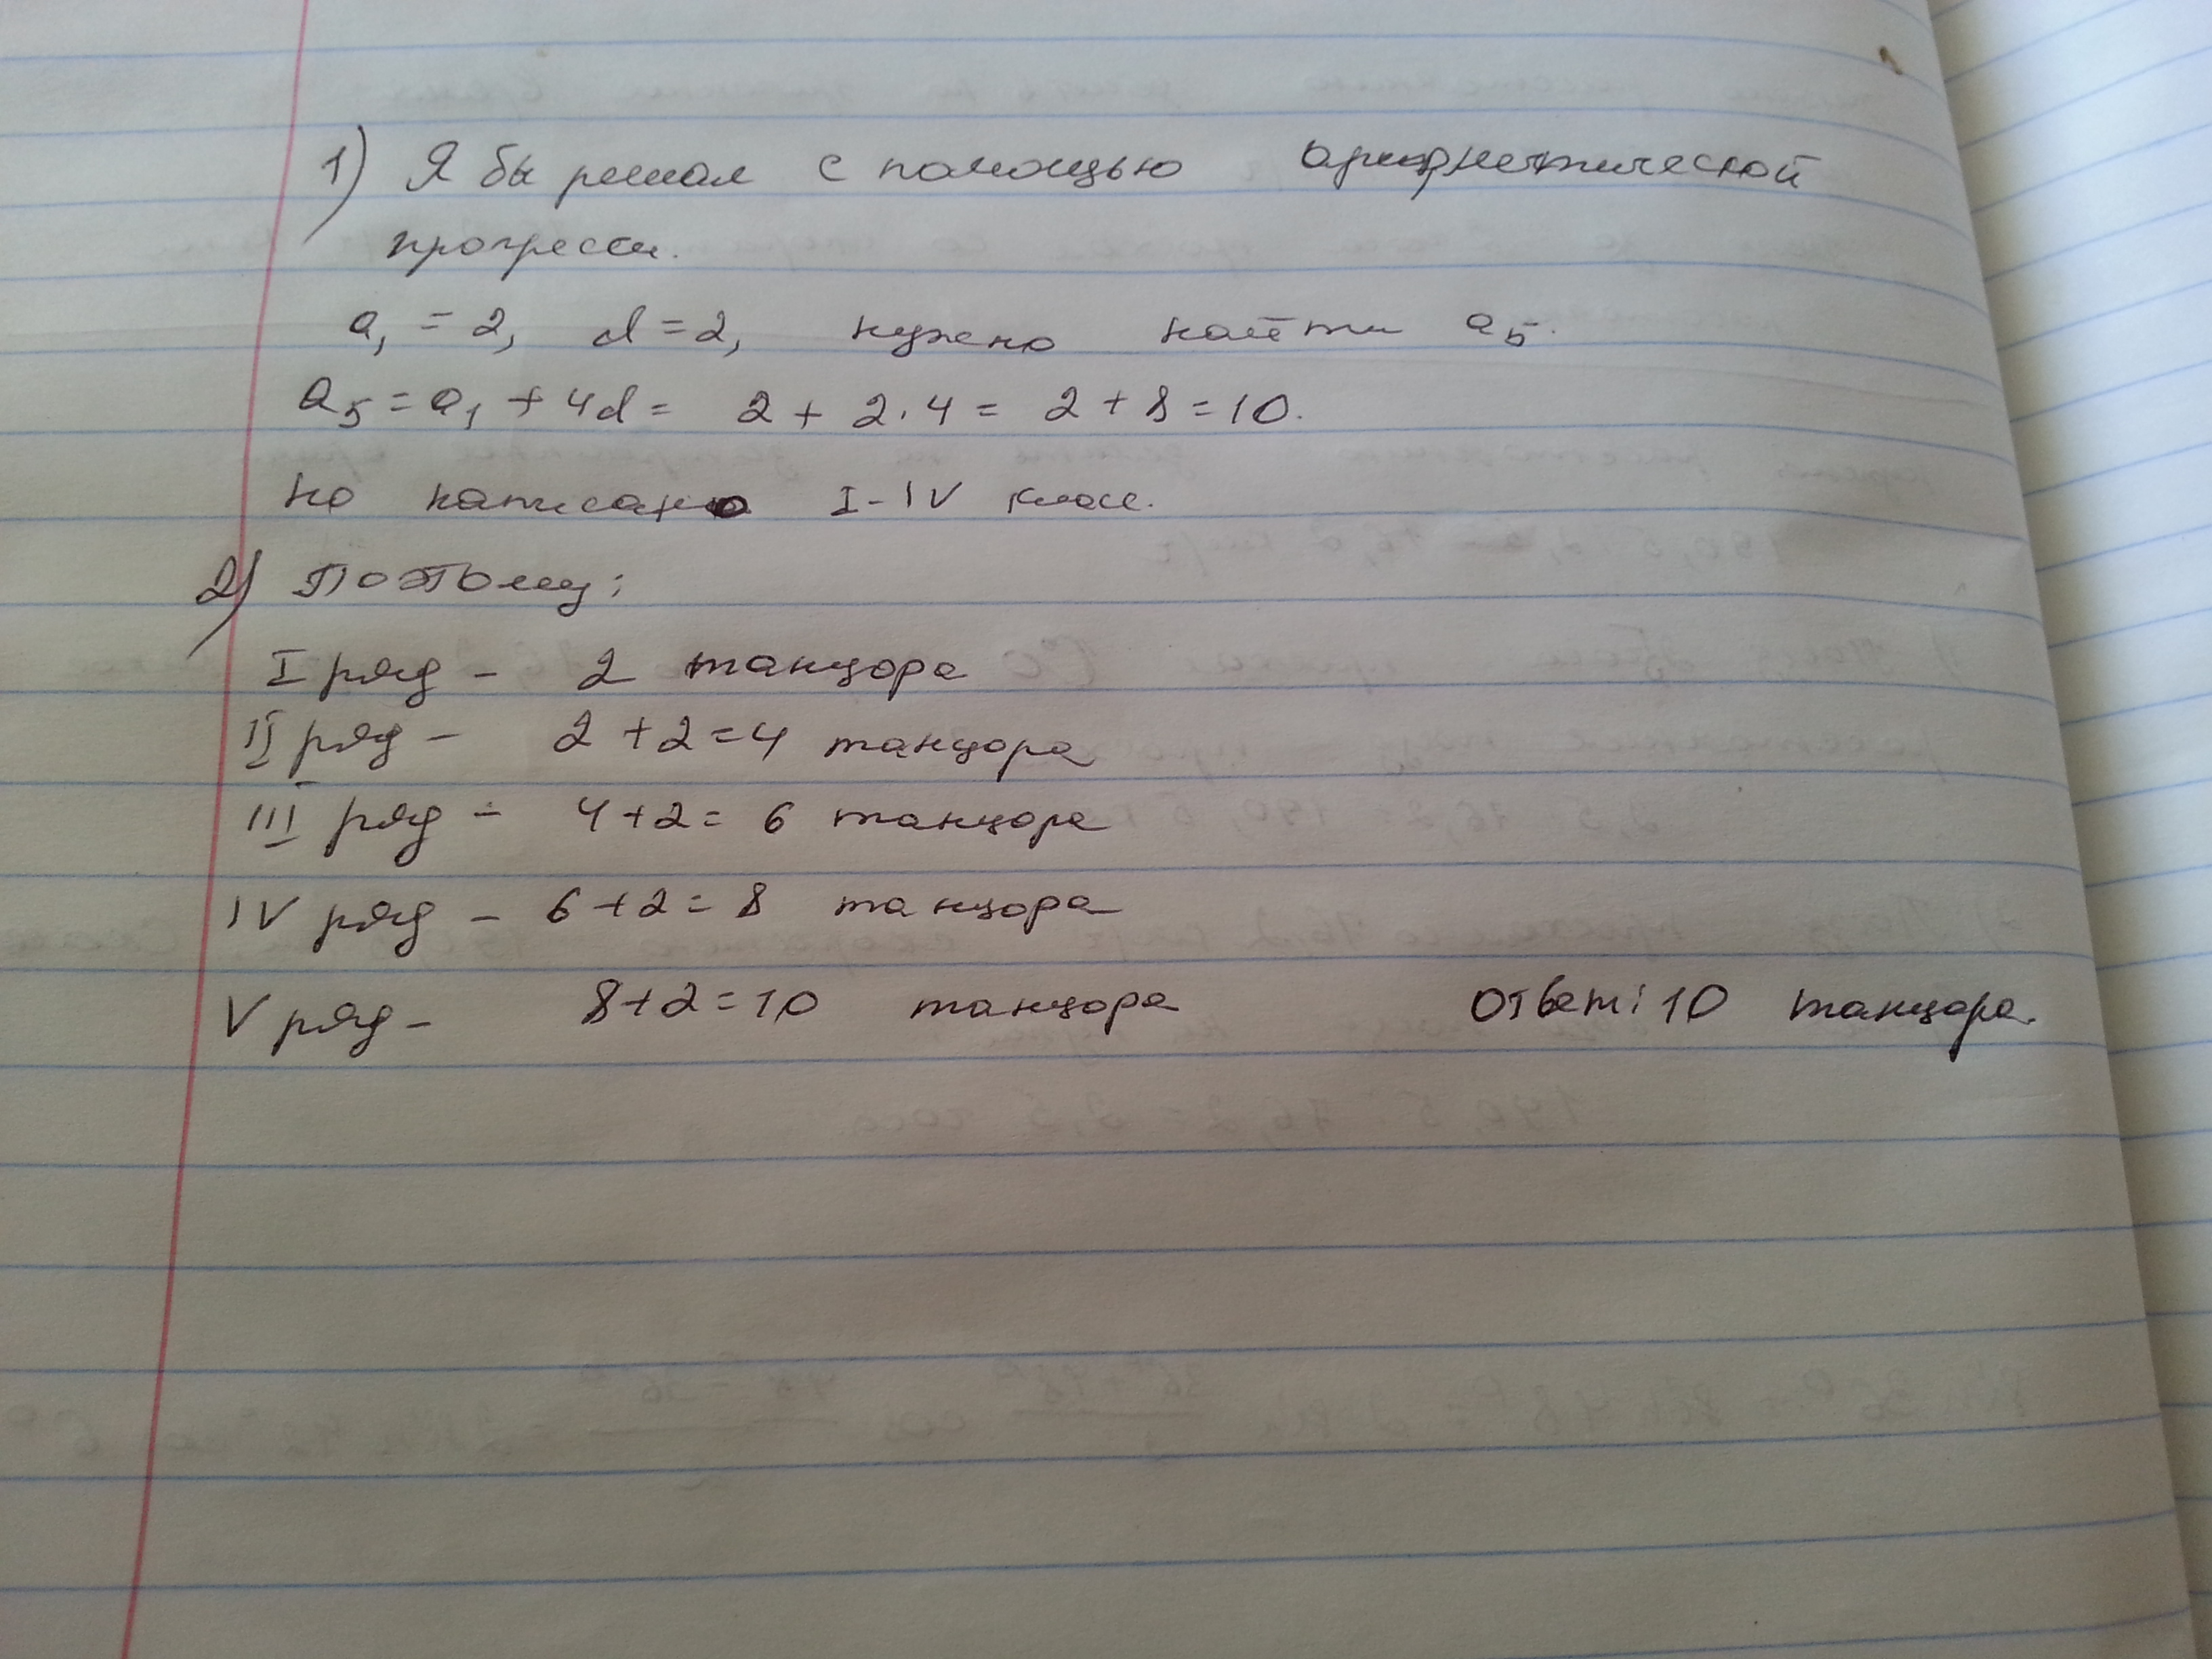 1) Я бы решал с помощью арифметической
прогресси.
a₁ = 2, d = 2, нужно найти a₅.
a₅ = a₁ + 4d = 2 + 2·4 = 2 + 8 = 10.
Но написано I-IV класс.
2) Поэтому:
I ряд - 2 танцора
II ряд - 2 + 2 = 4 танцора
III ряд - 4 + 2 = 6 танцора
IV ряд - 6 + 2 = 8 танцора
V ряд - 8 + 2 = 10 танцора Ответ: 10 танцора.